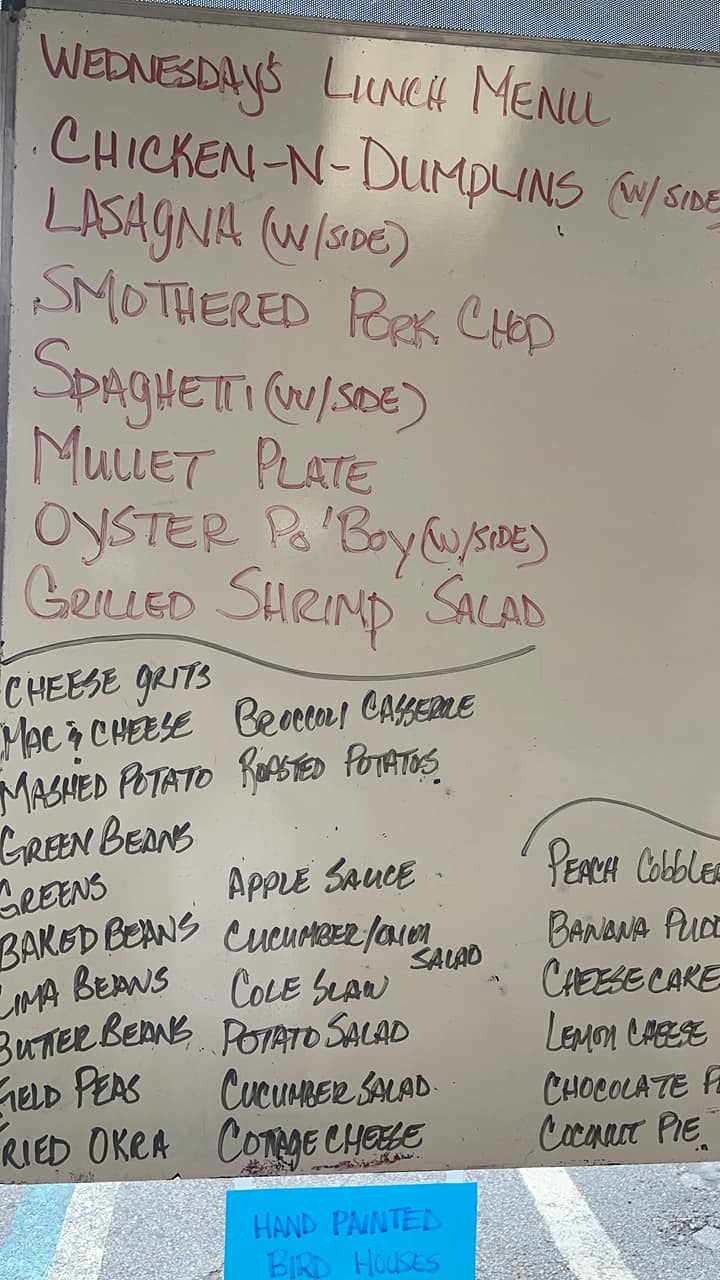 WEDNESDAY'S LUNCH MENU
CHICKEN-N-DUMPLINS (W/SIDE
LASAGNA (W/SIDE)
SMOTHERED PORK CHOP
SPAGHETTI (W/SIDE)
MULLET PLATE
OYSTER PO'BOY (W/SIDE)
GRILLED SHRIMP SALAD
CHEESE GRITS
MAC & CHEESE
MASHED POTATO
GREEN BEANS
GREENS
BAKED BEANS
LIMA BEANS
BUTTER BEANS
FIELD PEAS
FRIED OKRA
BROCCOLI CASSEROLE
ROASTED POTATOS
APPLE SAUCE
CUCUMBER/ONION
SALAD
COLE SLAW
POTATO SALAD
CUCUMBER SALAD
COTTAGE CHEESE
PEACH COBBLER
BANANA PUDD
CHEESECAKE
LEMON CHEESE
CHOCOLATE P
COCONUT PIE
HAND PAINTED
BIRD HOUSES